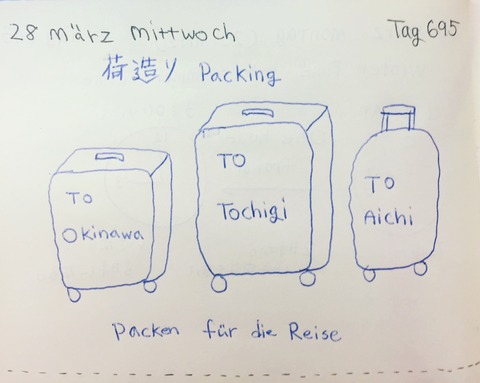 28 März Mittwoch
Tag 695
荷造り Packing
TO
Okinawa
TO
Tochigi
TO
Aichi
Packen für die Reise